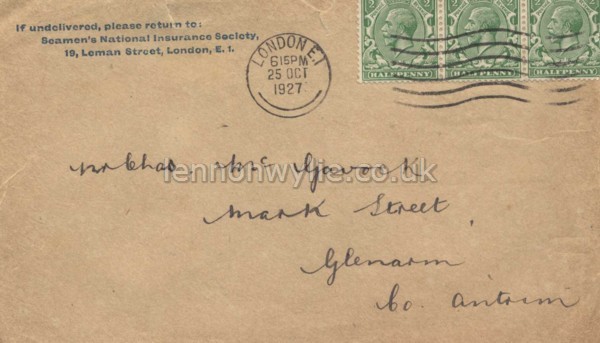 If undelivered, please return to:
Seamen's National Insurance Society,
19, Leman Street, London, E.1.
LONDON E.1
615PM
25 OCT
1927
HALFPENNY HALFPENNY HALFPENNY
Mr Chas. Mc Gavock
lennonwylie.co.uk
Mark Street
Glenarm
Co. Antrim